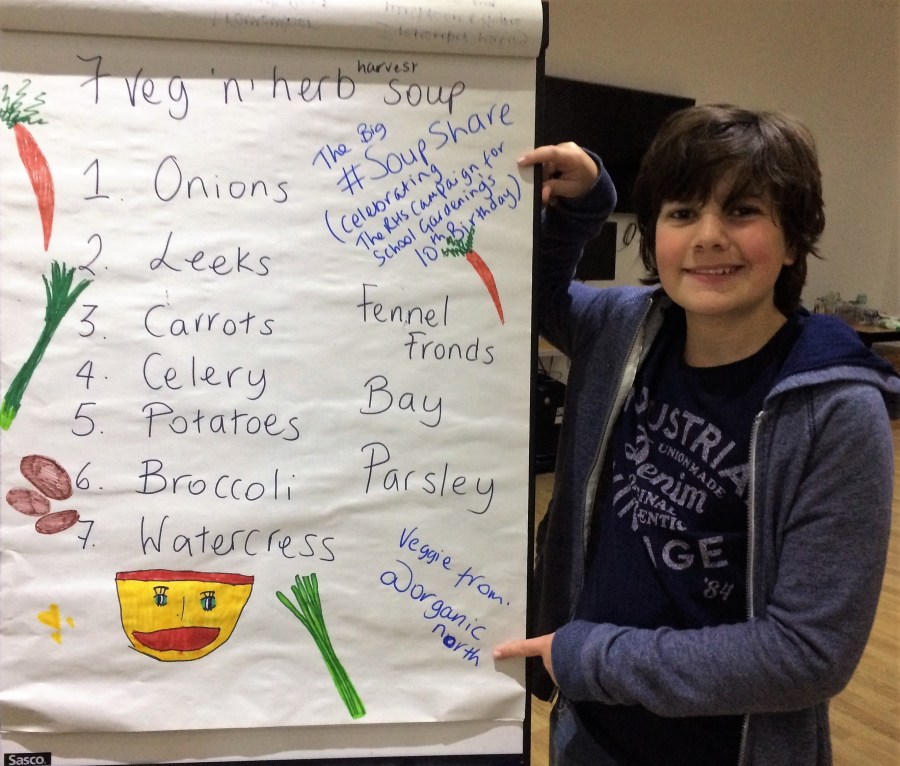 7 veg 'n' herb harvest soup
The Big
#SoupShare
(celebrating
The RHS Campaign for
School Gardening's
10th Birthday)
1. Onions
2. Leeks
3. Carrots
4. Celery
5. Potatoes
6. Broccoli
7. Watercress
Fennel
Fronds
Bay
Parsley
Veggie from.
@organic
north
Sasco.
USTRIA
UNIONMADE
Denim
INAL
ENTIC
AGE
'84